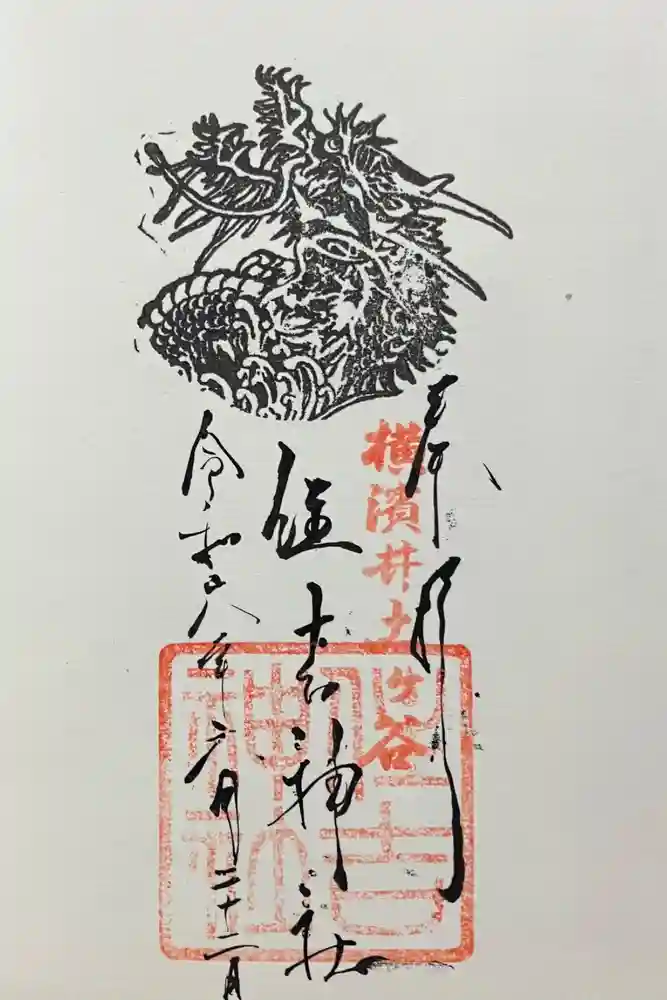 奉拝
横濱井土ヶ谷
住吉神社
令和六年六月二十二日
住吉神社